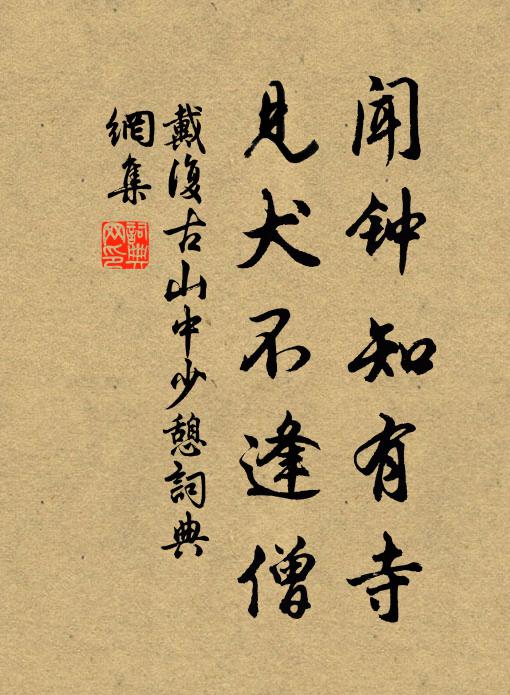 闻钟知有寺
见犬不逢僧
戴復古山中少憩詞典
網集
詞典網印